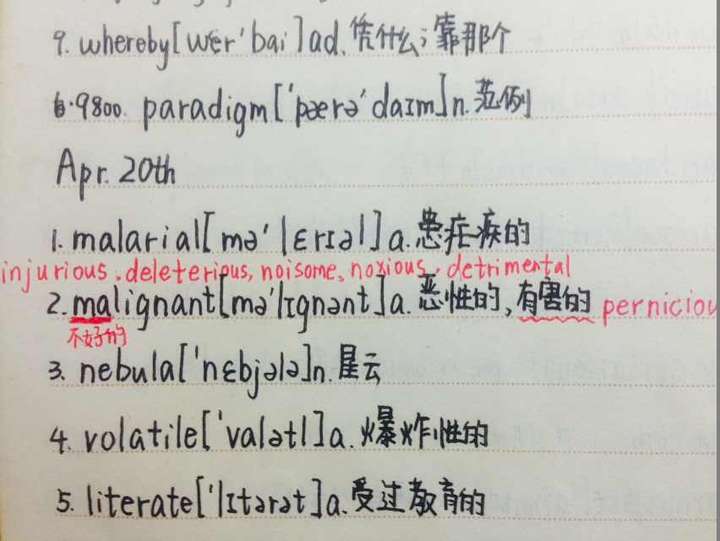 9. whereby[wɛr'bai]ad.凭什么;靠那个
6.9800. paradigm['pærə'daɪm]n.范例
Apr. 20th
1. malarial[mə'lɛrɪəl]a.患疟疾的
injurious.deleterious, noisome, noxious, detrimental
2. malignant[mə'lɪgnənt]a.恶性的,有害的 perniciou
不好的
3. nebula['nɛbjələ]n.星云
4. volatile['valətl]a.爆炸性的
5. literate['lɪtərət]a.受过教育的